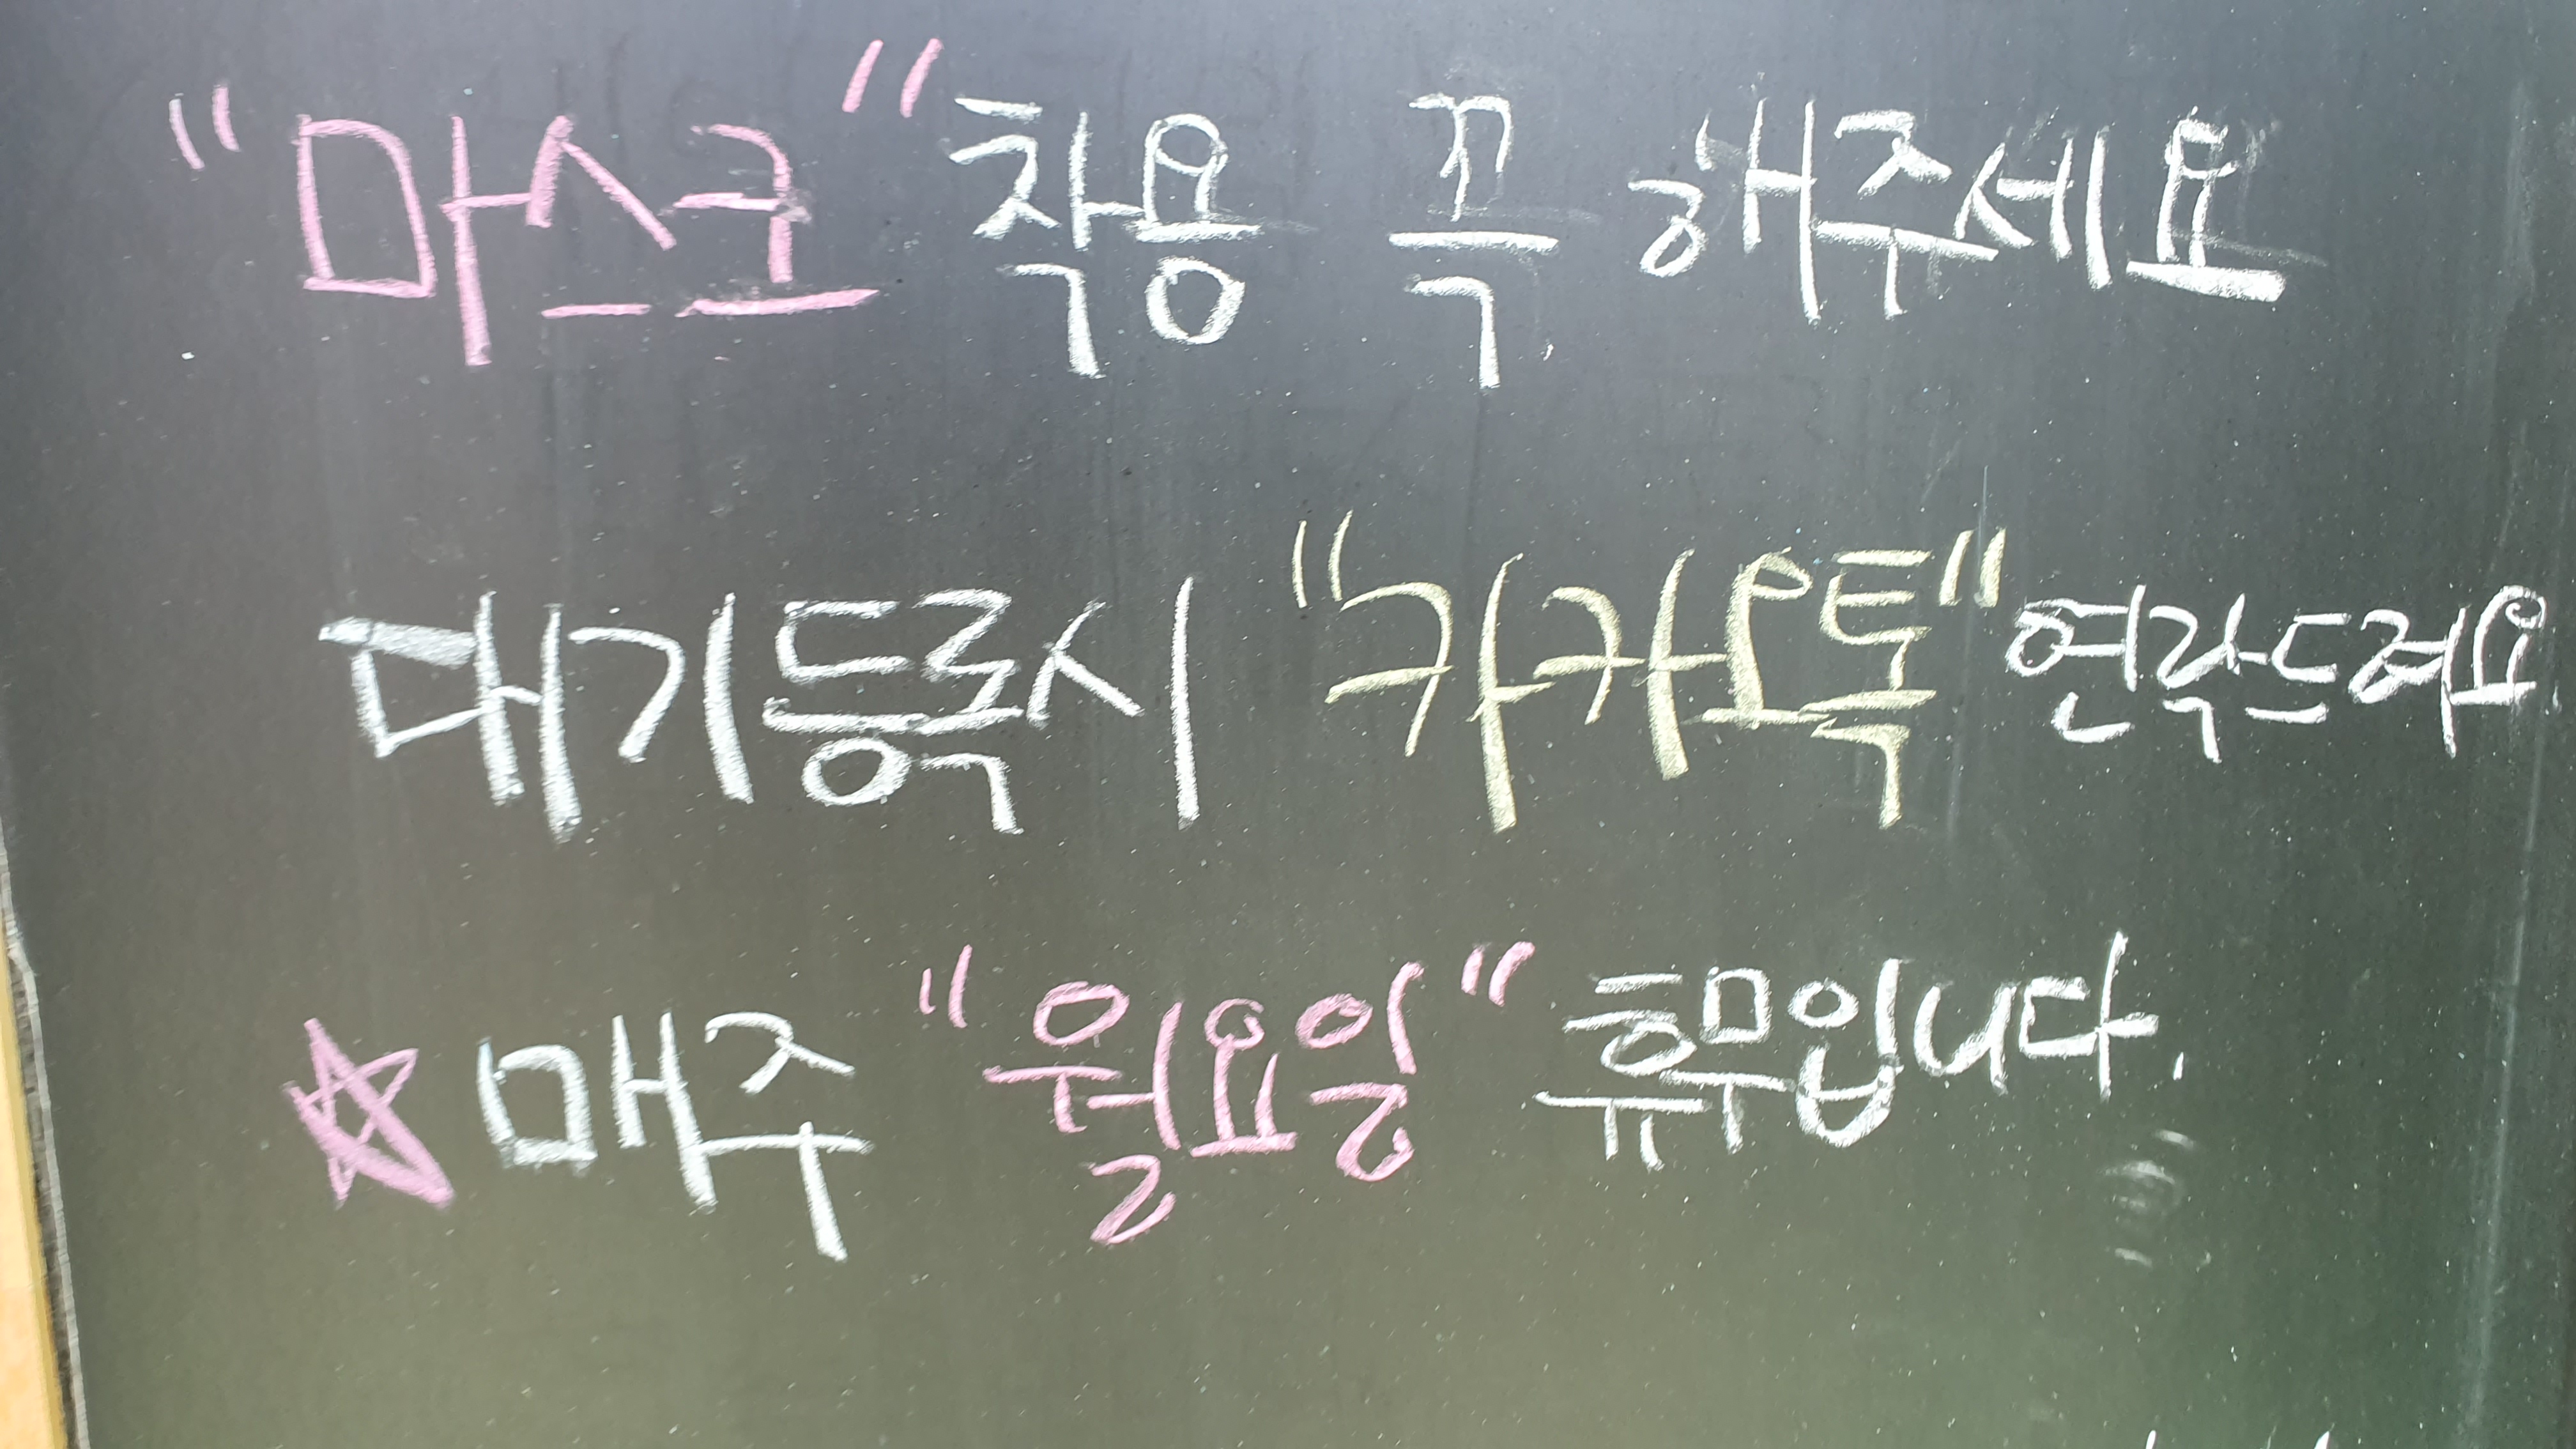 "마스크" 착용 꼭 해주세요
대기등록시 "카카오톡" 연락드려요.
☆ 매주 "월요일" 휴무입니다.